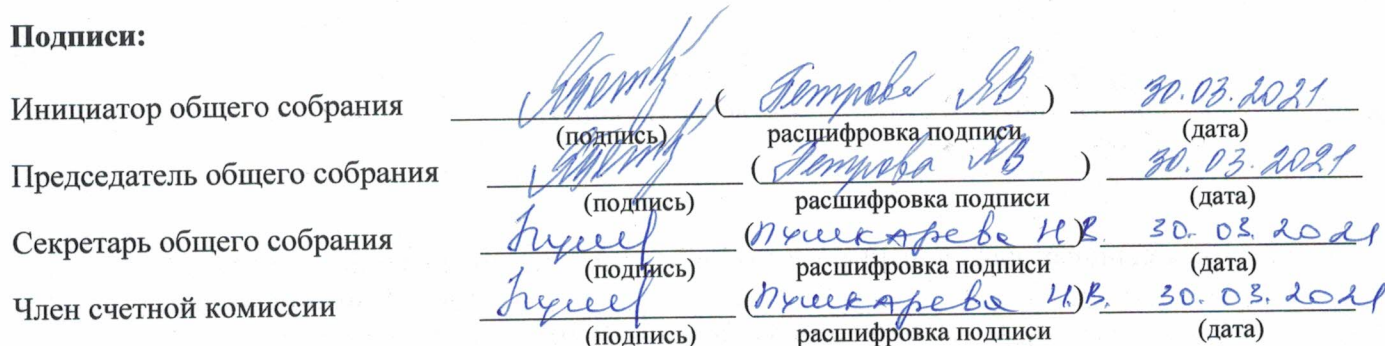 Подписи:
Инициатор общего собрания (Петрова ЯВ) 30.03.2021
(подпись) расшифровка подписи (дата)
Председатель общего собрания (Петрова ЯВ) 30.03.2021
(подпись) расшифровка подписи (дата)
Секретарь общего собрания (Пушкарева Н.В.) 30.03.2021
(подпись) расшифровка подписи (дата)
Член счетной комиссии (Пушкарева Н.В.) 30.03.2021
(подпись) расшифровка подписи (дата)